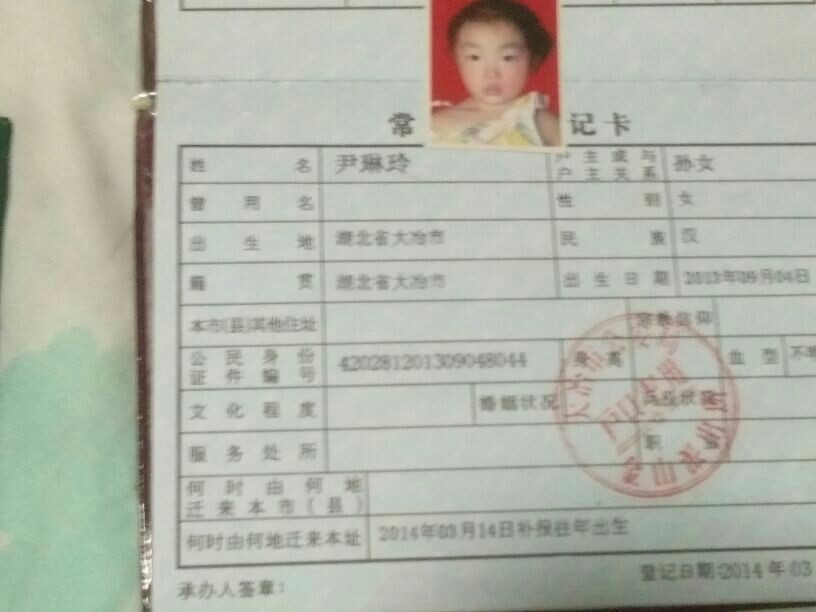 常 记卡
姓名 尹琳玲 户主或与户主关系 孙女
曾用名 性别 女
出生地 湖北省大冶市 民族 汉
籍贯 湖北省大冶市 出生日期 2013年09月04日
本市(县)其他住址 宗教信仰
公民身份证件编号 420281201309048044 身高 血型 不明
文化程度 婚姻状况 兵役状况
服务处所 职业
何时由何地迁来本市(县)
何时由何地迁来本址 2014年03月14日补报往年出生
承办人签章: 登记日期:2014年03
户口专用